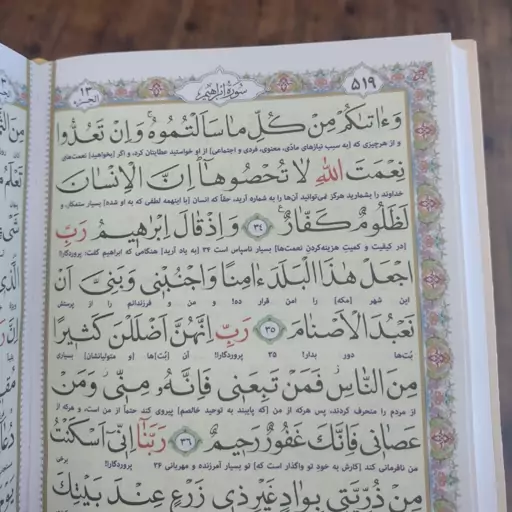 ۵۱۹
سورة ابراهیم
۱۳
الجزء
وَءَاتٰىكُمْ مِنْ كُلِّ مَا سَاَلْتُمُوهُ ۚ وَاِنْ تَعُدُّوا
و از هرچیزی که [به سبب نیازهای مادّی، معنوی، فردی و اجتماعی] از او خواستید عطایتان کرد، و اگر [بخواهید] نعمت‌های
نِعْمَتَ اللّٰهِ لَا تُحْصُوهَا ۗ اِنَّ الْاِنْسَانَ
خداوند را بشمارید هرگز نمی‌توانید آن‌ها را به شماره آرید، حقاً که انسان [با اینهمه لطفی که به او شده] بسیار ستمکار، و
لَظَلُومٌ كَفَّارٌ ۚ ﴿۳۴﴾ وَاِذْ قَالَ اِبْرٰهيمُ رَبِّ
[در کیفیت و کمیّتِ هزینه‌کردنِ نعمت‌ها] بسیار ناسپاس است ۳۴ [به یاد آرید] هنگامی که ابراهیم گفت: پروردگارا!
اجْعَلْ هٰذَا الْبَلَدَ ءَامِنًا وَاجْنُبْنى وَبَنِىَّ اَنْ
این شهر [مکه] را امن قرار ده! و من و فرزندانم را از پرستش
نَعْبُدَ الْاَصْنَامَ ﴿۳۵﴾ رَبِّ اِنَّهُنَّ اَضْلَلْنَ كَثيرًا
بُت‌ها دور بدار! ۳۵ پروردگارا! آن [بُت]ها [و متولیانشان] بسیاری
مِنَ النَّاسِ ۖ فَمَنْ تَبِعَنى فَاِنَّهُ مِنّى ۖ وَمَنْ
از مردم را منحرف کردند، پس هرکه از من [که پایبند به توحید خالصم] پیروی کند حتماً از من است، و هرکه از
عَصَانى فَاِنَّكَ غَفُورٌ رَحيمٌ ﴿۳۶﴾ رَبَّنَا اِنّى اَسْكَنْتُ
من نافرمانی کند [کارش به خودِ تو واگذار است که] تو بسیار آمرزنده و مهربانی ۳۶ پروردگارا! برخی
مِنْ ذُرِّيَّتى بِوَادٍ غَيْرِ ذى زَرْعٍ عِنْدَ بَيْتِكَ